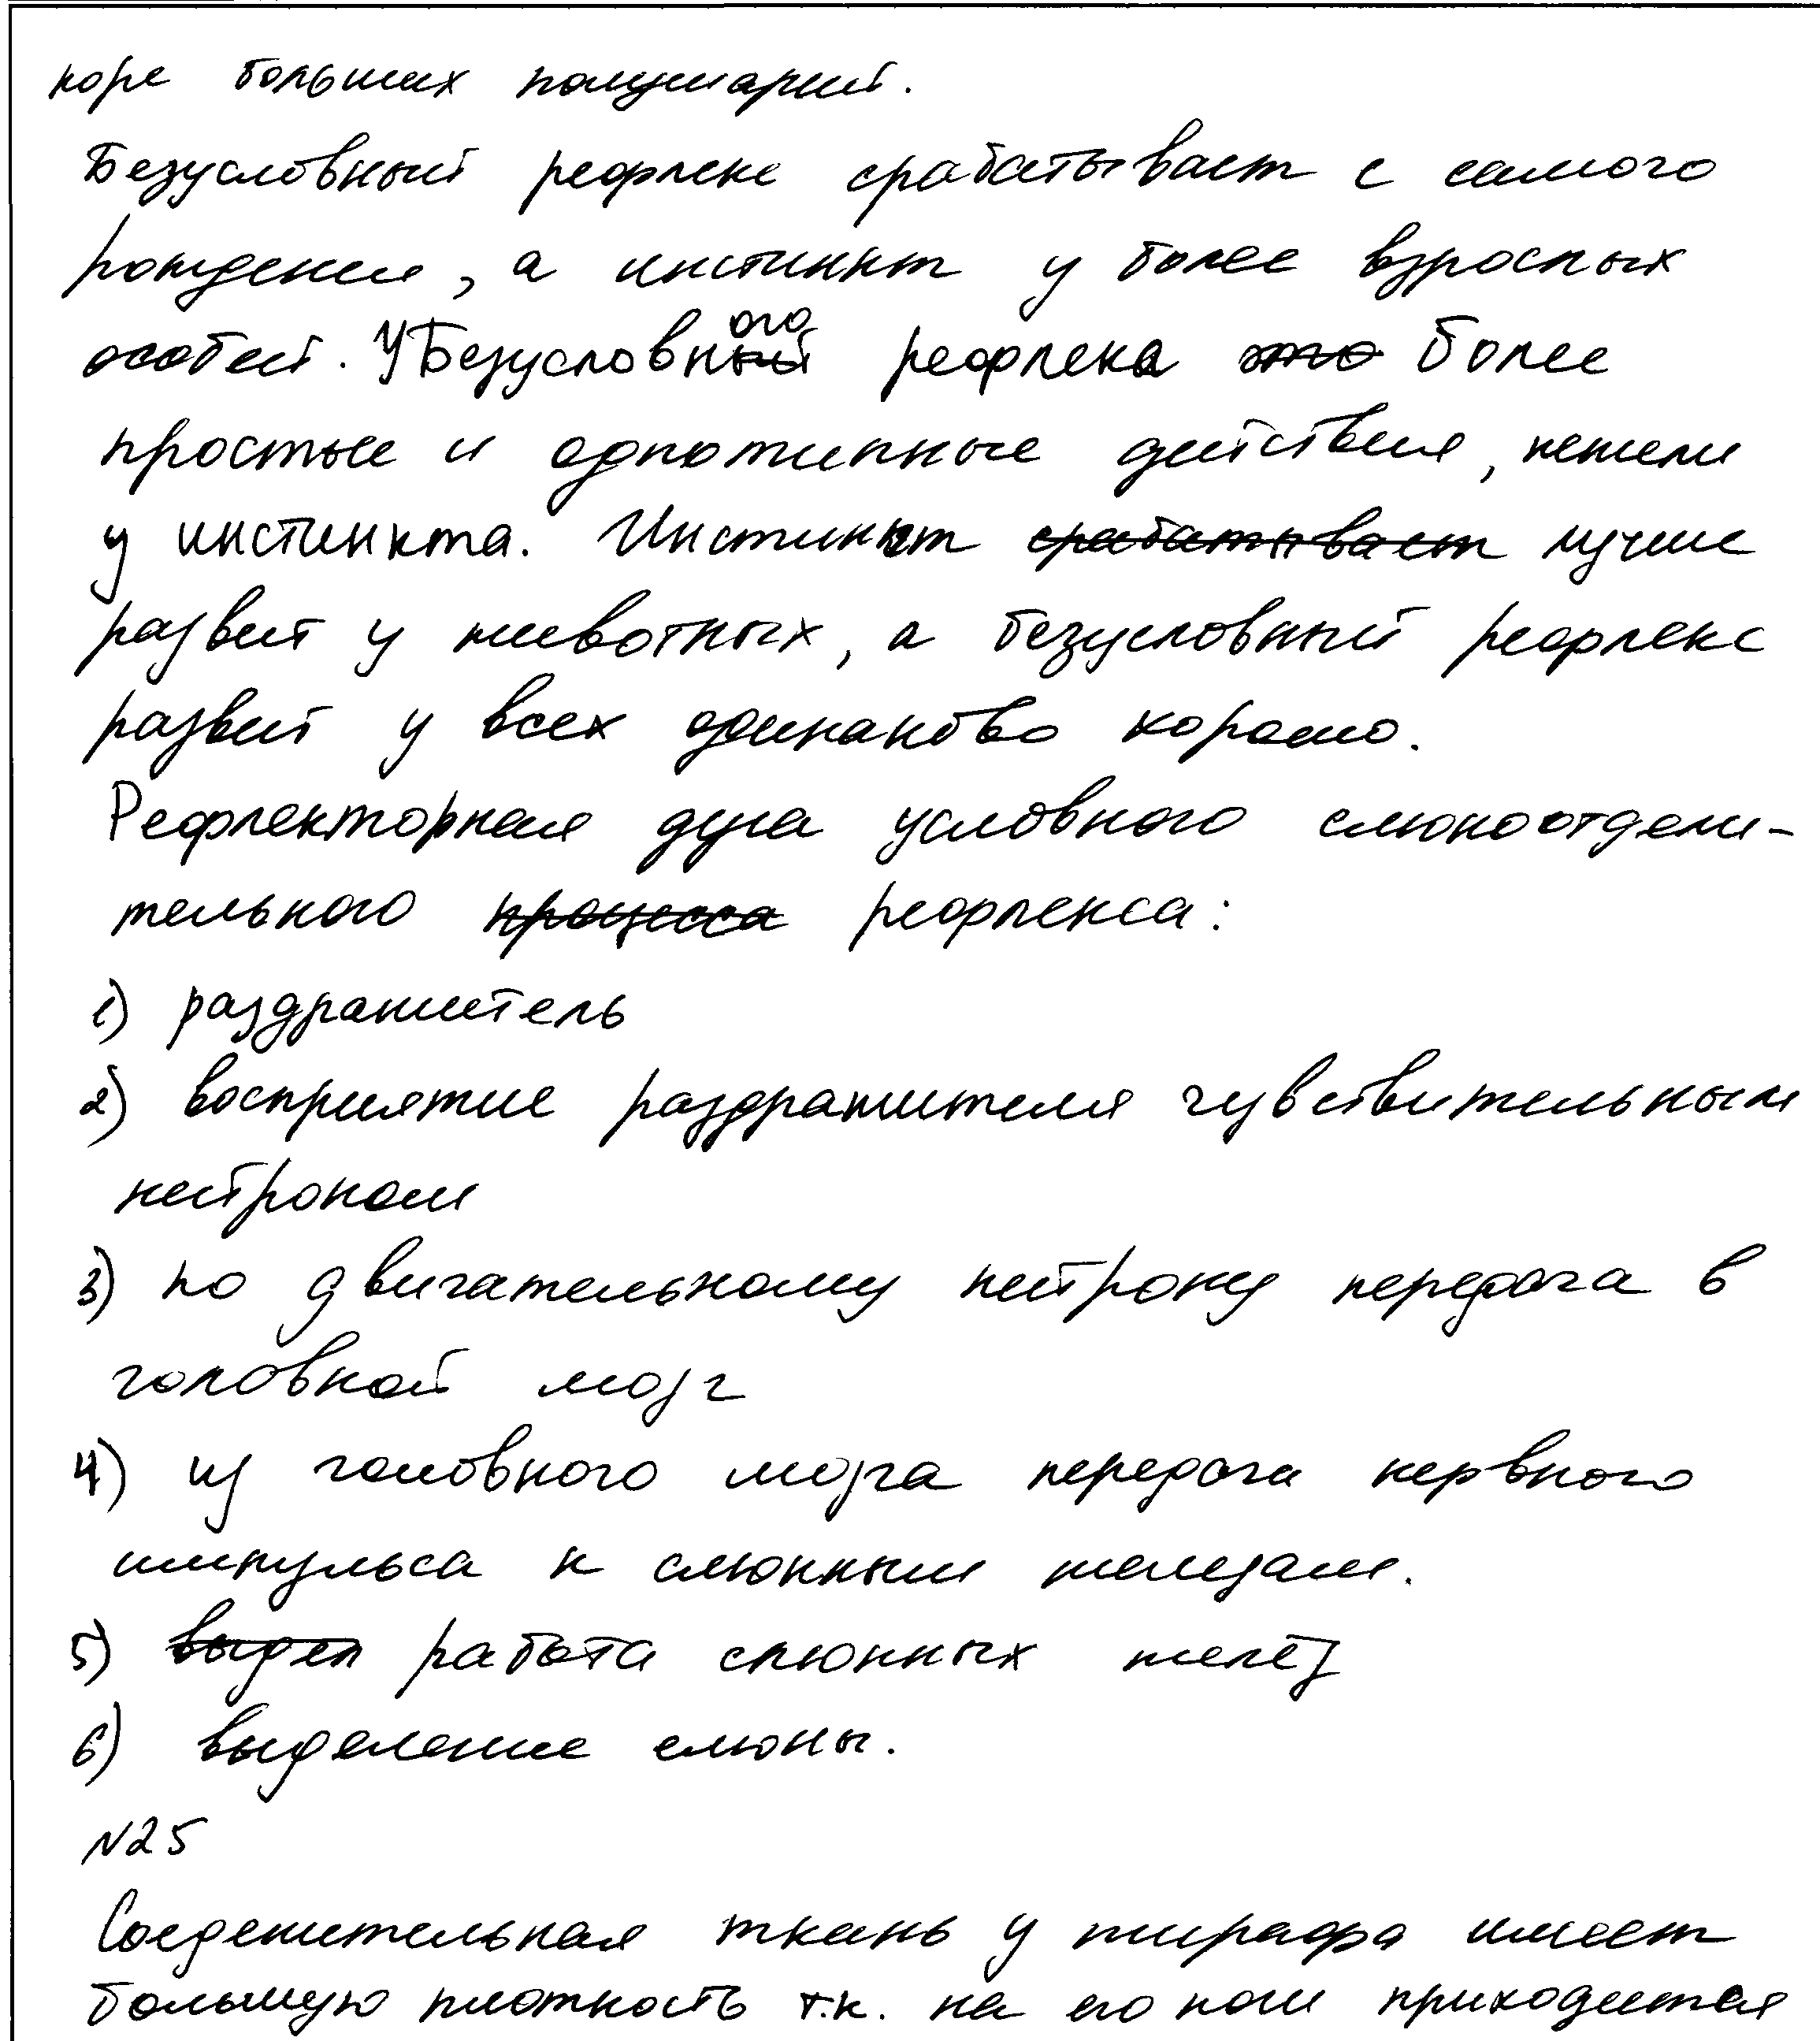 коре больших полушарий.
Безусловный рефлекс срабатывает с самого
рождения, а инстинкт у более взрослых
особей. У Безусловного рефлекса ~~это~~ более
простые и однотипные действия, нежели
у инстинкта. Инстинкт ~~срабатывает~~ лучше
развит у животных, а безусловный рефлекс
развит у всех одинаково хорошо.
Рефлекторная дуга условного слюноотдели-
тельного ~~процесса~~ рефлекса:
1) раздражитель
2) восприятие раздражителя чувствительным
нейроном
3) по двигательному нейрону передача в
головной мозг
4) из головного мозга передача нервного
импульса к слюнным железам.
5) ~~выдел~~ работа слюнных желёз
6) выделение слюны.
№25
Соеденительная ткань у жирафа имеет
большую плотность т.к. на его ноги приходится